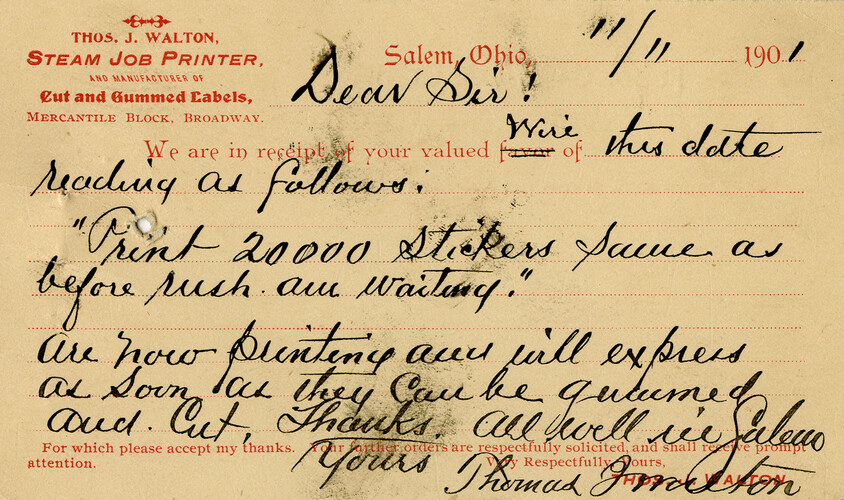 THOS. J. WALTON,
STEAM JOB PRINTER,
AND MANUFACTURER OF
Cut and Gummed Labels,
MERCANTILE BLOCK, BROADWAY.
Salem, Ohio, 11/11 1901
Dear Sir!
We are in receipt of your valued favor Wire of this date
reading as follows:
"Print 20000 stickers same as
before rush. am waiting."
are now printing and will express
as soon as they can be gummed
and. Cut, Thanks. All well in Salem
For which please accept my thanks. Your further orders are respectfully solicited, and shall receive prompt
attention. Very Respectfully Yours,
Yours
THOS. J. WALTON
Thomas J Walton